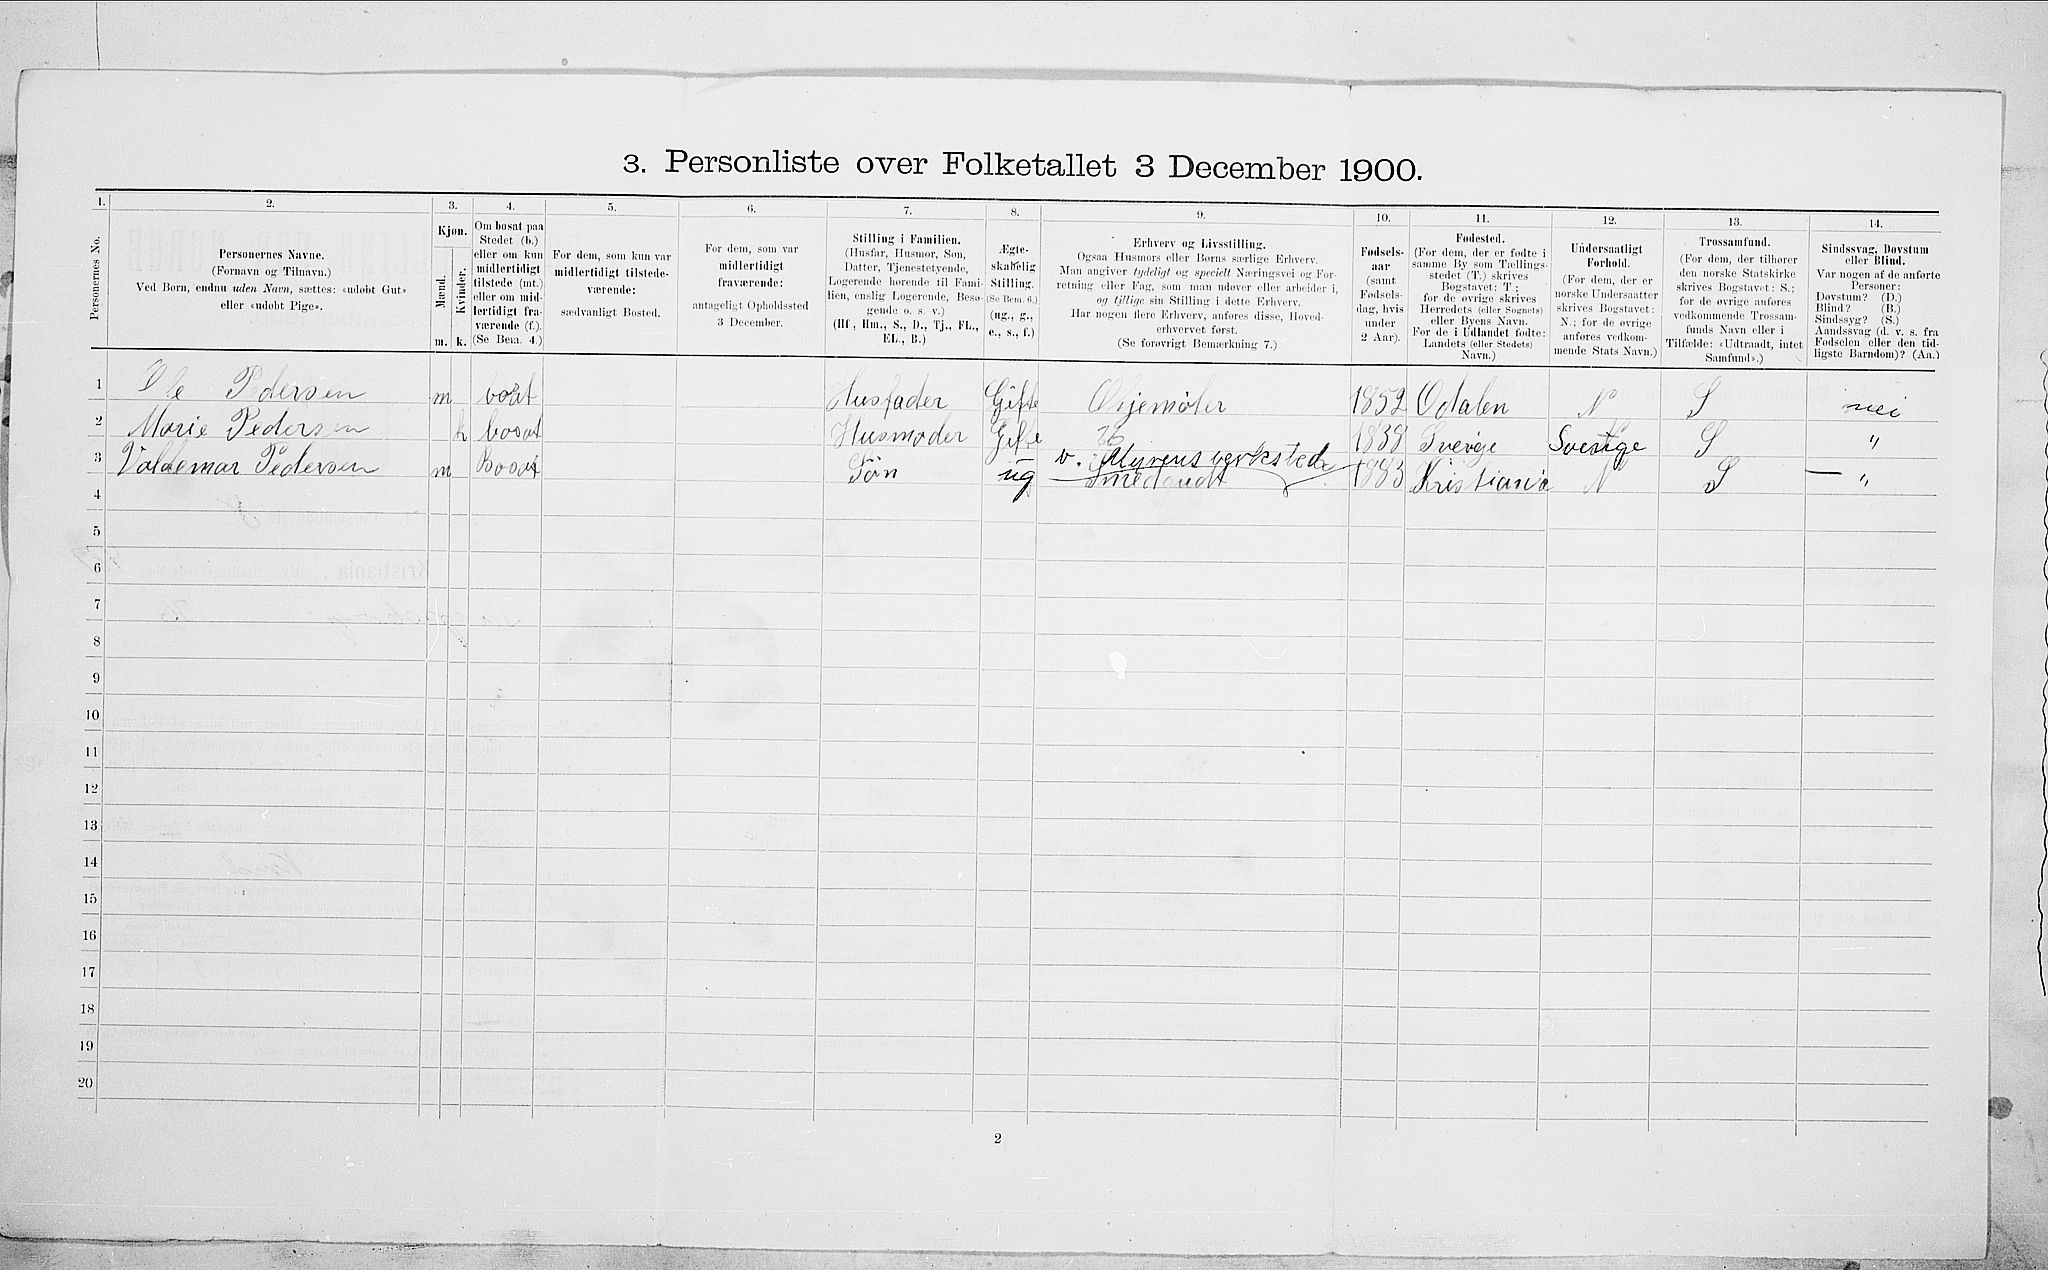 3. Personliste over Folketallet 3 December 1900.
1. 2. 3. 4. 5. 6. 7. 8. 9. 10. 11. 12. 13. 14.
Personernes No.
Personernes Navne.
(Fornavn og Tilnavn.)
Ved Børn, endnu uden Navn, sættes: «udøbt Gut»
eller «udøbt Pige».
Kjøn.
Mænd.
Kvinder.
m. k.
Om bosat paa
Stedet (b.)
eller om kun
midlertidigt
tilstede (mt.)
eller om mid-
lertidigt fra-
værende (f.).
(Se Bem. 4.)
For dem, som kun var
midlertidigt tilstede-
værende:
sædvanligt Bosted.
For dem, som var
midlertidigt
fraværende:
antageligt Opholdssted
3 December.
Stilling i Familien.
(Husfar, Husmor, Søn,
Datter, Tjenestetyende,
Logerende hørende til Fami-
lien, enslig Logerende, Besø-
gende o. s. v.)
(Hf., Hm., S., D., Tj., FL.,
EL., B.)
Ægte-
skabelig
Stilling.
(Se Bem. 6.)
(ug., g.,
e., s., f.)
Erhverv og Livsstilling.
Ogsaa Husmors eller Børns særlige Erhverv.
Man angiver tydeligt og specielt Næringsvei og For-
retning eller Fag, som man udøver eller arbeider i,
og tillige sin Stilling i dette Erhverv.
Har nogen flere Erhverv, anføres disse, Hoved-
erhvervet først.
(Se forøvrigt Bemærkning 7.)
Fødsels-
aar
(samt
Fødsels-
dag, hvis
under
2 Aar).
Fødested.
(For dem, der er fødte i
samme By som Tællings-
stedet (T.) skrives
Bogstavet: T.;
for de øvrige skrives
Herredets (eller Sognets)
eller Byens Navn.
For de i Udlandet fødte:
Landets (eller Stedets)
Navn.)
Undersaatligt
Forhold.
(For dem, der er
norske Undersaatter
skrives Bogstavet:
N.; for de øvrige
anføres vedkom-
mende Stats Navn.)
Trossamfund.
(For dem, der tilhører
den norske Statskirke
skrives Bogstavet: S.;
for de øvrige anføres
vedkommende Trossam-
funds Navn eller i
Tilfælde: «Udtraadt, intet
Samfund».)
Sindssvag, Døvstum
eller Blind.
Var nogen af de anførte
Personer:
Døvstum? (D.)
Blind? (B.)
Sindssyg? (S.)
Aandssvag (d. v. s. fra
Fødselen eller den tid-
ligste Barndom)? (Aa.)
1 Ole Pedersen m bosat Husfader Gifte 1852 Odalen N S nei
2 Marie Pedersen k bosat Husmoder Gifte Sverige Sverige S "
v. Myrens verksted
3 Valdemar Pedersen m Bosat Søn ug 1883 Kristiania N S — "
4
5
6
7
8
9
10
11
12
13
14
15
16
17
18
19
20
2